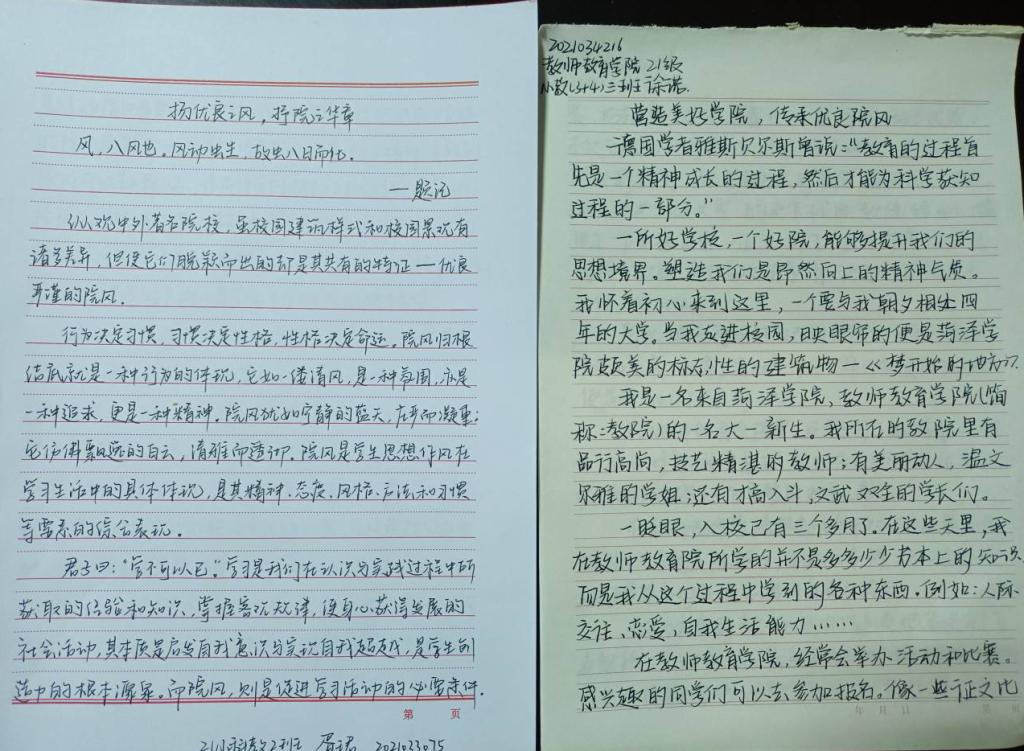 扬优良之风，抒院之华章
风，八风也。风动虫生，故虫八日而化。
—题记
纵观中外著名院校，虽校园建筑样式和校园景观有
诸多差异，但使它们脱颖而出的却是其共有的特征——优良
严谨的院风.
行为决定习惯，习惯决定性格，性格决定命运。院风归根
结底就是一种行为的体现，它如一缕清风，是一种氛围，亦是
一种追求，更是一种精神。院风犹如宁静的蓝天，庄严而凝重；
它仿佛飘逸的白云，清雅而透彻。院风是学生思想作风在
学习生活中的具体体现，是其精神、态度、风格、方法和习惯
等要素的综合表现。
君子曰：“学不可以已。”学习是我们在认识与实践过程中所
获取的经验和知识，掌握客观规律，使身心获得发展的
社会活动，其本质是启发自我意识与实现自我超越，是学生创
造力的根本源泉。而院风，则是促进学习活动中的必要条件.
第 页
21小科教2班 胥珺 2021033075
2021034216
教师教育学院 21级
小教(3+4)三班 徐诺.
营造美好学院，传承优良院风
德国学者雅斯贝尔斯曾说：“教育的过程首
先是一个精神成长的过程，然后才能为科学获知
过程的一部分。”
一所好学校，一个好院，能够提升我们的
思想境界。塑造我们是昂然向上的精神气质。
我怀着初心来到这里，一个要与我朝夕相处四
年的大学。当我走进校园，映眼帘的便是菏泽学
院最美的标志性的建筑物—《梦开始的地方》.
我是一名来自菏泽学院，教师教育学院（简
称：教院）的一名大一新生。我所在的教院里有
品行高尚，技艺精湛的教师；有美丽动人，温文
尔雅的学姐；还有才高八斗，文武双全的学长们。
一眨眼，入校已有三个多月了。在这些天里，我
在教师教育院所学的并不是多多少少书本上的知识
而是我从这个过程中学到的各种东西。例如：人际
交往、恋爱，自我生活能力……
在教师教育学院，经常会举办活动和比赛。
感兴趣的同学们可以去参加报名。像一些征文比
年 月 日 第